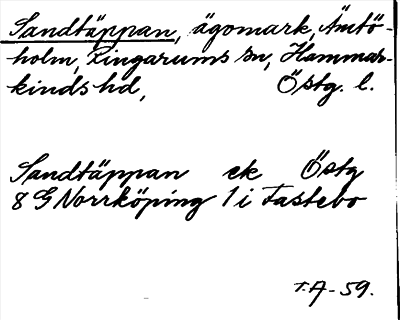 Sandtäppan, ägomark, Ämtö-
holm, Ringarums sn, Hammar-
kinds hd, Östg. l.
Sandtäppan ek Östg
8 G Norrköping 1 i Fastebo
T.A-59.